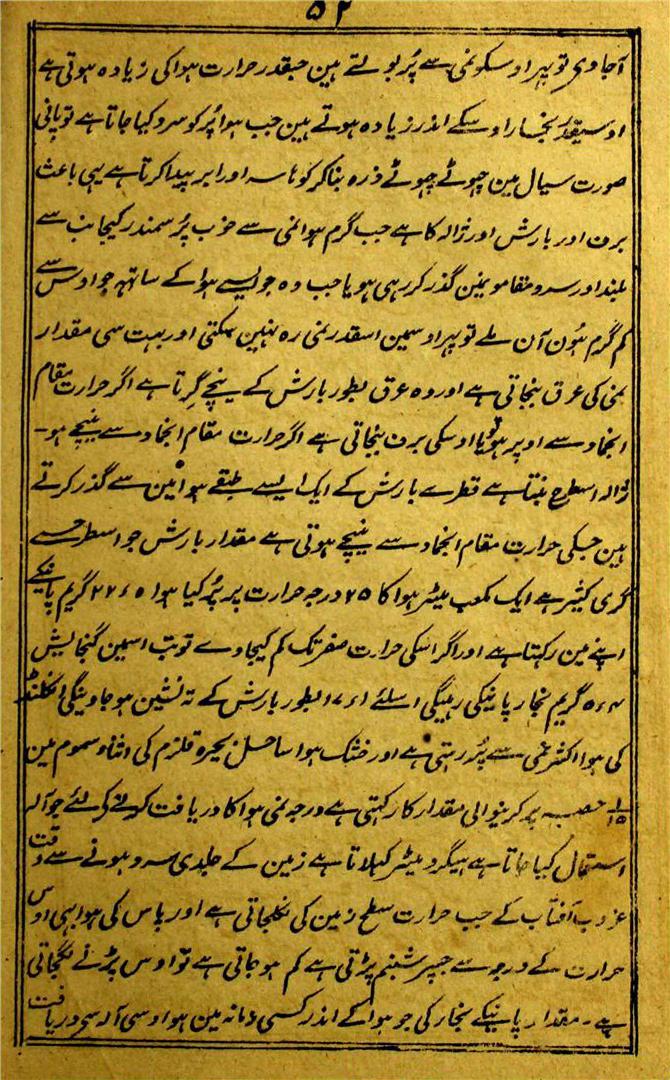 ۵۲
آجاوی تو پہر اوسکو نمی سے پُر بولتے ہین جیقدر حرارت ہوا کی زیادہ ہوتی ہے
اوسیقدر بخار اوسکے اندر زیادہ ہوتے ہین جب ہوا پُر کو سرد کیا جاتا ہے تو پانی
صورت سیال مین چھوٹے چھوٹے ذرہ بنا کر کوہاسہ اور ابر پیدا کرتا ہے یہی باعث
برف اور بارش اور ژالہ کا ہے جب گرم ہوا نمی سے خوب پُر سمندر کیجانب سے
بلند اور سرد مقامومین گذر کر رہی ہو یا جب وہ جو ایسے ہوا کے ساتہہ جو اوس سے
کم گرم ہون آن ملے تو پہر اوسمین اسقدر نمی رہ نہین سکتی اور بہت سی مقدار
نمی کی عرق بنجاتی ہے اور وہ عرق بطور بارش کے نیچے گرتا ہے اگر حرارت مقام
انجماد سے اوپر ہو یا اوسکی برف بنجاتی ہے اگر حرارت مقام انجماد سے نیچے ہو۔
ژالہ اسطرح بنتا ہے قطرے بارش کے ایک ایسے طبقے ہوا مین سے گذر کرتے
ہین جسکی حرارت مقام انجماد سے نیچے ہوتی ہے مقدار بارش جو اسطرحسے
گری کثیر ہے ایک مکعب میٹر ہوا کا ۲۵ درجہ حرارت پر پُر کیا ہوا ۲۲٫۵ گریم پانیکے
اپنے مین رکہتا ہے اور اگر اسکی حرارت صفر تک کم کیجاوے توتب اسمین گنجایش
۵٫۴ گریم بخار پانیکی رہیگی اسلئے ۱۷٫۱ بطور بارش کے تہ نشین ہو جاوینگی انگلنڈ
کی ہوا اکثر نمی سے پُر رہتی ہے اور خشک ہوا ساحل بحیرہ قلزم کی اثناء سموم مین
۱/۱۵ حصہ پر کرنیوالی مقدار کا رکہتی ہے درجہ نمی ہوا کا دریافت کرنے کے لئے جو آلہ
استعمال کیا جاتا ہے ہیگرومیٹر کہلاتا ہے زمین کے جلدی سرد ہونے سے وقت
غروب آفتاب کے جب حرارت سطح زمین کی نکلجاتی ہے اور پاس کی ہوا بہی اوس
حرارت کے درجہ سے جسپر شبنم پڑتی ہے کم ہو جاتی ہے تو اوس پڑنے لگجاتی
ہے۔ مقدار پانیکے بخار کی جو ہوا کے اندر کسی زمانہ مین ہو اوسی آلہ سے دریافت